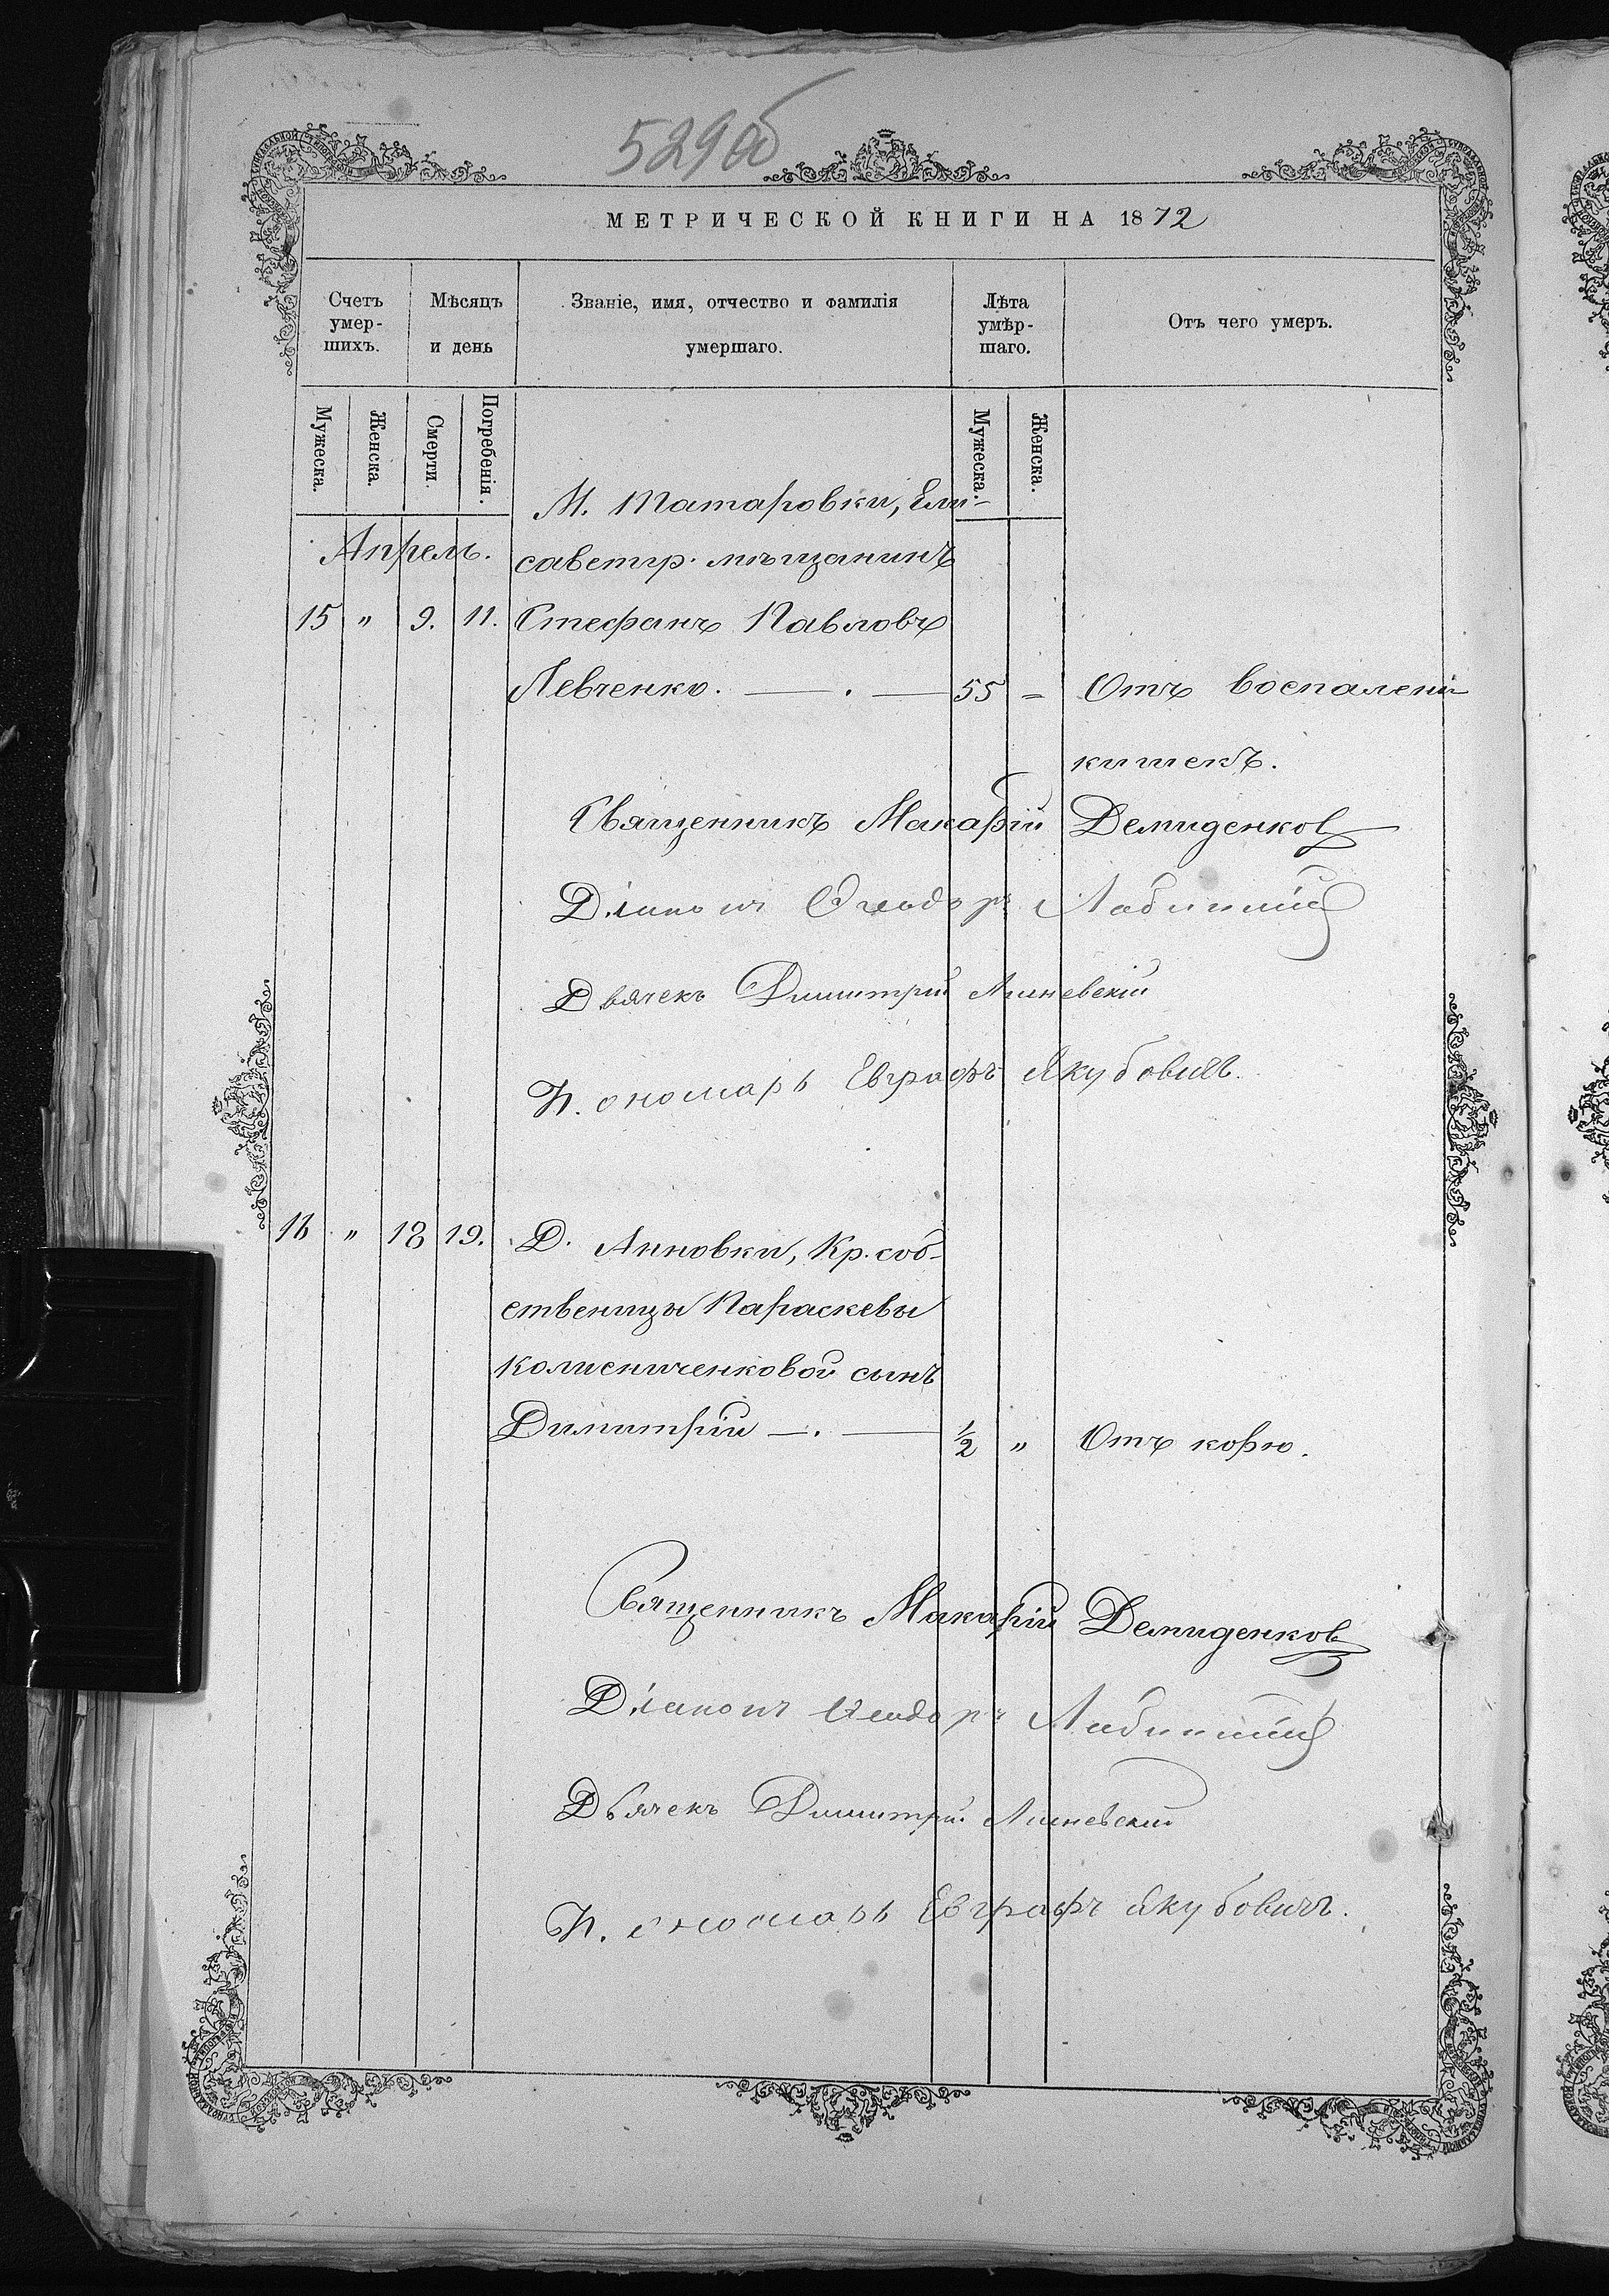 529 об
МЕТРИЧЕСКОЙ КНИГИ НА 1872
Счетъ умер-шихъ.
Мѣсяцъ и день
Званіе, имя, отчество и фамилія умершаго.
Лѣта умѣр-шаго.
Отъ чего умеръ.
Мужеска.
Женска.
Смерти.
Погребенія.
Мужеска.
Женска.
М. Татаровки, Ели-
Апрель. саветгр. мѣщанинъ
15 " 9. 11. Стефанъ Павловъ
Левченко. — . — 55 - Отъ воспалені
кишекъ.
Священникъ Макарій Демиденков
Діаконъ Ѳеодоръ
Дьячекъ Димитрій Линевскій
П. ономарь Евграфъ Якубовичъ.
16 " 18 19. Д. Анновки, Кр. соб-
ственицы Параскевы
Колисниченковой сынъ
Димитрій — . — ½ " Отъ корю.
Священникъ Макарій Демиденков
Діаконъ Ѳеодоръ
Дьячекъ Димитрій Линевскій
П. ономарь Евграфъ Якубовичъ.